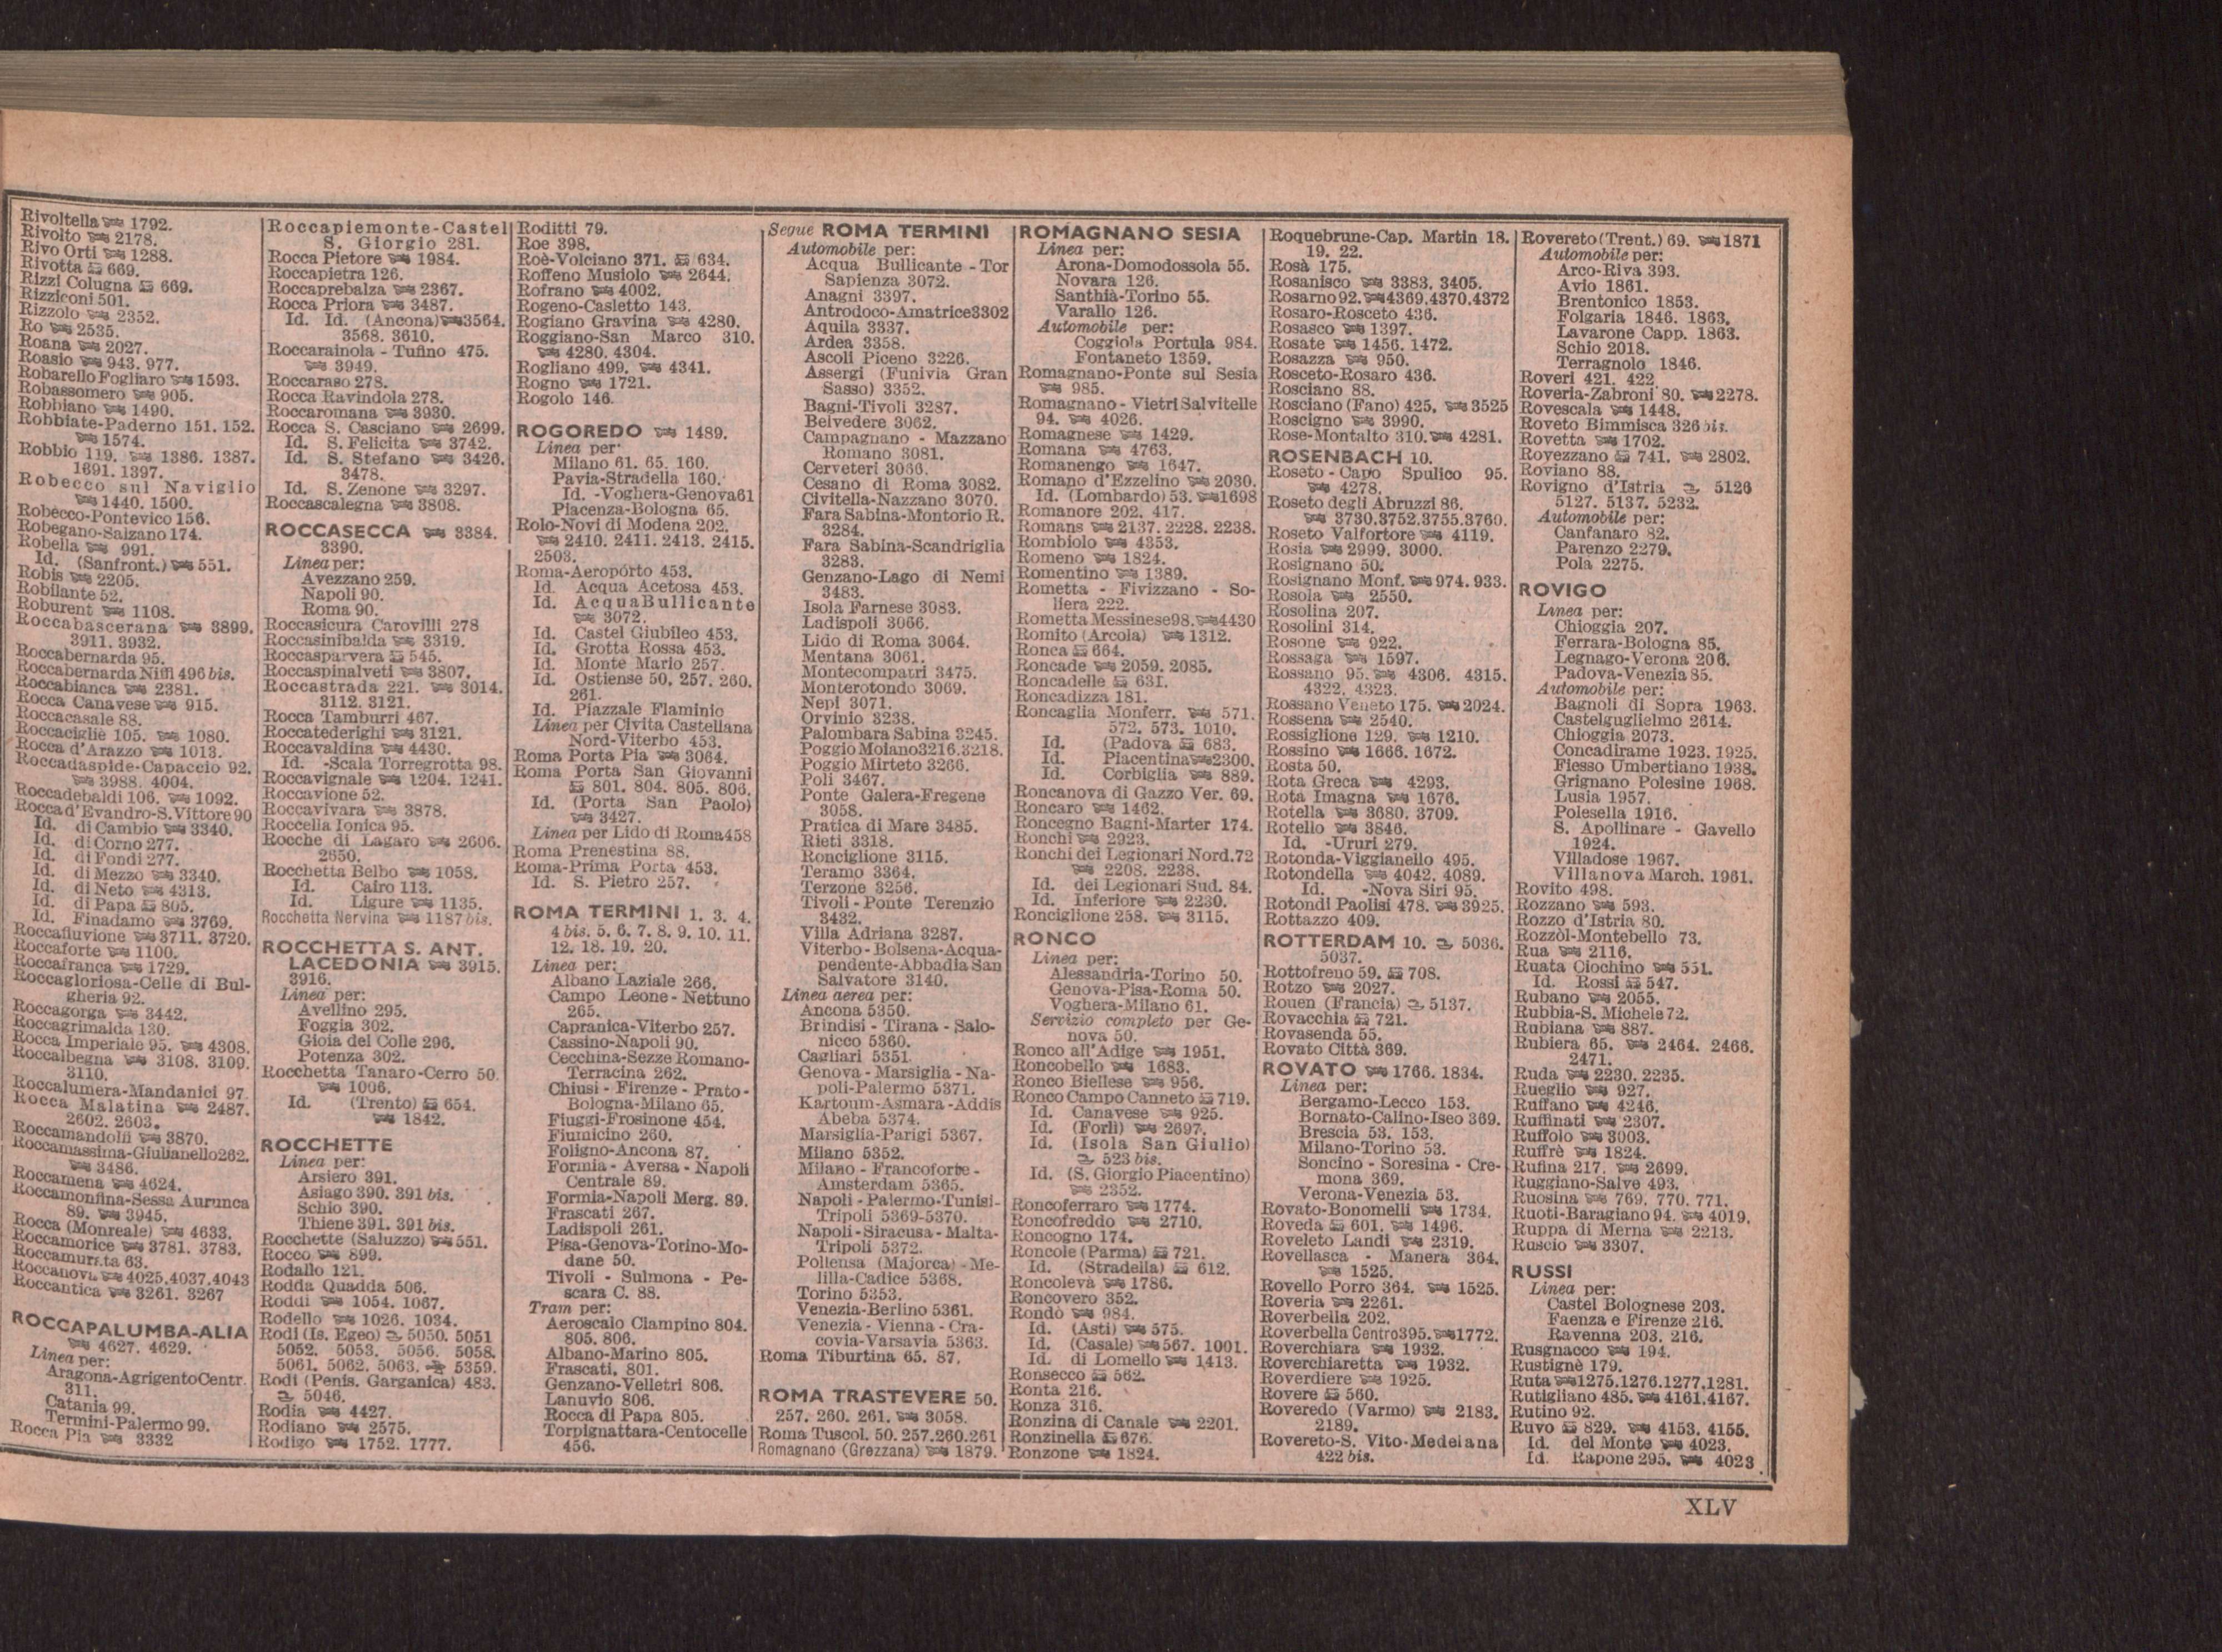 Rivoltella 1792.
Rivolto 2178.
Rivo Orti 1288.
Rivotta 669.
Rizzi Colugna 669.
Rizziconi 501.
Rizzolo 2352.
Ro 2535.
Roana 2027.
Roasio 943. 977.
Robarello Fogliaro 1593.
Robassomero 905.
Robbiano 1490.
Robbiate-Paderno 151. 152.
1574.
Robbio 119. 1386. 1387.
1691. 1397.
Robecco sul Naviglio
1440. 1500.
Robecco-Pontevico 156.
Robegano-Salzano 174.
Robella 991.
Id. (Sanfront.) 551.
Robis 2205.
Robilante 52.
Roburent 1108.
Roccabascerana 3899.
3911. 3932.
Roccabernarda 95.
Roccabernarda Niffi 496 bis.
Roccabianca 2381.
Rocca Canavese 915.
Roccacasale 88.
Roccacigliè 105. 1080.
Rocca d'Arazzo 1013.
Roccadaspide-Capaccio 92.
3988. 4004.
Roccadebaldi 106. 1092.
Rocca d'Evandro-S. Vittore 90
Id. di Cambio 3340.
Id. di Corno 277.
Id. di Fondi 277.
Id. di Mezzo 3340.
Id. di Neto 4313.
Id. di Papa 805.
Id. Finadamo 3769.
Roccafluvione 3711. 3720.
Roccaforte 1100.
Roccafranca 1729.
Roccagloriosa-Celle di Bul-
gheria 92.
Roccagorga 3442.
Roccagrimalda 130.
Rocca Imperiale 95. 4308.
Roccalbegna 3108. 3109.
3110.
Roccalumera-Mandanici 97.
Rocca Malatina 2487.
2602. 2603.
Roccamandolfi 3870.
Roccamassima-Giulianello 262.
3486.
Roccamena 4624.
Roccamonfina-Sessa Aurunca
89. 3945.
Rocca (Monreale) 4633.
Roccamorice 3781. 3783.
Roccamurata 63.
Roccanova 4025. 4037. 4043
Roccantica 3261. 3267
ROCCAPALUMBA-ALIA
4627. 4629.
Linea per:
Aragona-Agrigento Centr.
311.
Catania 99.
Termini-Palermo 99.
Rocca Pia 3332
Roccapiemonte-Castel
S. Giorgio 281.
Rocca Pietore 1984.
Roccapietra 126.
Roccaprebalza 2367.
Rocca Priora 3487.
Id. Id. (Ancona) 3564.
3568. 3610.
Roccarainola - Tufino 475.
3949.
Roccaraso 278.
Rocca Ravindola 278.
Roccaromana 3930.
Rocca S. Casciano 2699.
Id. S. Felicita 3742.
Id. S. Stefano 3426.
3478.
Id. S. Zenone 3297.
Roccascalegna 3808.
ROCCASECCA 3384.
3390.
Linea per:
Avezzano 259.
Napoli 90.
Roma 90.
Roccasicura Carovilli 278
Roccasinibalda 3319.
Roccasparvera 545.
Roccaspinalveti 3807.
Roccastrada 221. 3014.
3112. 3121.
Rocca Tamburri 467.
Roccatederighi 3121.
Roccavaldina 4430.
Id. -Scala Torregrotta 98.
Roccavignale 1204. 1241.
Roccavione 52.
Roccavivara 3878.
Roccella Ionica 95.
Rocche di Lagaro 2606.
2650.
Rocchetta Belbo 1058.
Id. Cairo 113.
Id. Ligure 1135.
Rocchetta Nervina 1187 bis.
ROCCHETTA S. ANT.
LACEDONIA 3915.
3916.
Linea per:
Avellino 295.
Foggia 302.
Gioia del Colle 296.
Potenza 302.
Rocchetta Tanaro-Cerro 50.
1006.
Id. (Trento) 654.
1842.
ROCCHETTE
Linea per:
Arsiero 391.
Asiago 390. 391 bis.
Schio 390.
Thiene 391. 391 bis.
Rocchette (Saluzzo) 551.
Rocco 899.
Rodallo 121.
Rodda Quadda 506.
Roddi 1054. 1067.
Rodello 1026. 1034.
Rodi (Is. Egeo) 5050. 5051
5052. 5053. 5056. 5058.
5061. 5062. 5063. 5359.
Rodi (Penis. Garganica) 483.
5046.
Rodia 4427.
Rodiano 2575.
Rodigo 1752. 1777.
Roditti 79.
Roe 398.
Roè-Volciano 371. 634.
Roffeno Musiolo 2644.
Rofrano 4002.
Rogeno-Casletto 143.
Rogiano Gravina 4280.
Roggiano-San Marco 310.
4280. 4304.
Rogliano 499. 4341.
Rogno 1721.
Rogolo 146.
ROGOREDO 1489.
Linea per:
Milano 61. 65. 160.
Pavia-Stradella 160.
Id. -Voghera-Genova 61
Piacenza-Bologna 65.
Rolo-Novi di Modena 202.
2410. 2411. 2413. 2415.
2503.
Roma-Aeropórto 453.
Id. Acqua Acetosa 453.
Id. Acqua Bullicante
3072.
Id. Castel Giubileo 453.
Id. Grotta Rossa 453.
Id. Monte Mario 257.
Id. Ostiense 50. 257. 260.
261.
Id. Piazzale Flaminio
Linea per Civita Castellana
Nord-Viterbo 453.
Roma Porta Pia 3064.
Roma Porta San Giovanni
801. 804. 805. 806.
Id. (Porta San Paolo)
3427.
Linea per Lido di Roma 458
Roma Prenestina 88.
Roma-Prima Porta 453.
Id. S. Pietro 257.
ROMA TERMINI 1. 3. 4.
4 bis. 5. 6. 7. 8. 9. 10. 11.
12. 18. 19. 20.
Linea per:
Albano Laziale 266.
Campo Leone - Nettuno
265.
Capranica-Viterbo 257.
Cassino-Napoli 90.
Cecchina-Sezze Romano-
Terracina 262.
Chiusi - Firenze - Prato -
Bologna-Milano 65.
Fiuggi-Frosinone 454.
Fiumicino 260.
Foligno-Ancona 87.
Formia - Aversa - Napoli
Centrale 89.
Formia-Napoli Merg. 89.
Frascati 267.
Ladispoli 261.
Pisa-Genova-Torino-Mo-
dane 50.
Tivoli - Sulmona - Pe-
scara C. 88.
Tram per:
Aeroscalo Ciampino 804.
805. 806.
Albano-Marino 805.
Frascati, 801.
Genzano-Velletri 806.
Lanuvio 806.
Rocca di Papa 805.
Torpignattara-Centocelle
456.
Segue ROMA TERMINI
Automobile per:
Acqua Bullicante - Tor
Sapienza 3072.
Anagni 3397.
Antrodoco-Amatrice 3302
Aquila 3337.
Ardea 3358.
Ascoli Piceno 3226.
Assergi (Funivia Gran
Sasso) 3352.
Bagni-Tivoli 3287.
Belvedere 3062.
Campagnano - Mazzano
Romano 3081.
Cerveteri 3066.
Cesano di Roma 3082.
Civitella-Nazzano 3070.
Fara Sabina-Montorio R.
3284.
Fara Sabina-Scandriglia
3283.
Genzano-Lago di Nemi
3483.
Isola Farnese 3083.
Ladispoli 3066.
Lido di Roma 3064.
Mentana 3061.
Montecompatri 3475.
Monterotondo 3069.
Nepi 3071.
Orvinio 3238.
Palombara Sabina 3245.
Poggio Moiano 3216. 3218.
Poggio Mirteto 3266.
Poli 3467.
Ponte Galera-Fregene
3058.
Pratica di Mare 3485.
Rieti 3318.
Ronciglione 3115.
Teramo 3364.
Terzone 3256.
Tivoli - Ponte Terenzio
3432.
Villa Adriana 3287.
Viterbo - Bolsena-Acqua-
pendente-Abbadia San
Salvatore 3140.
Linea aerea per:
Ancona 5350.
Brindisi - Tirana - Salo-
nicco 5360.
Cagliari 5351.
Genova - Marsiglia - Na-
poli-Palermo 5371.
Kartoum-Asmara -Addis
Abeba 5374.
Marsiglia-Parigi 5367.
Milano 5352.
Milano - Francoforte -
Amsterdam 5365.
Napoli - Palermo-Tunisi-
Tripoli 5369-5370.
Napoli - Siracusa - Malta-
Tripoli 5372.
Pollensa (Majorca) - Me-
lilla-Cadice 5368.
Torino 5353.
Venezia-Berlino 5361.
Venezia - Vienna - Cra-
covia-Varsavia 5363.
Roma Tiburtina 65. 87.
ROMA TRASTEVERE 50.
257. 260. 261. 3058.
Roma Tuscol. 50. 257. 260. 261
Romagnano (Grezzana) 1879.
ROMAGNANO SESIA
Linea per:
Arona-Domodossola 55.
Novara 126.
Santhià-Torino 55.
Varallo 126.
Automobile per:
Coggiola Portula 984.
Fontaneto 1359.
Romagnano-Ponte sul Sesia
985.
Romagnano - Vietri Salvitelle
94. 4026.
Romagnese 1429.
Romana 4763.
Romanengo 1647.
Romano d'Ezzelino 2030.
Id. (Lombardo) 53. 1698
Romanore 202. 417.
Romans 2137. 2228. 2238.
Rombiolo 4353.
Romeno 1824.
Romentino 1389.
Rometta - Fivizzano - So-
liera 222.
Rometta Messinese 98. 4430
Romito (Arcola) 1312.
Ronca 664.
Roncade 2059. 2085.
Roncadelle 631.
Roncadizza 181.
Roncaglia Monferr. 571.
572. 573. 1010.
Id. (Padova 683.
Id. Piacentina 2300.
Id. Corbiglia 889.
Roncanova di Gazzo Ver. 69.
Roncaro 1462.
Roncegno Bagni-Marter 174.
Ronchi 2923.
Ronchi dei Legionari Nord. 72
2208. 2238.
Id. dei Legionari Sud. 84.
Id. Inferiore 2230.
Ronciglione 258. 3115.
RONCO
Linea per:
Alessandria-Torino 50.
Genova-Pisa-Roma 50.
Voghera-Milano 61.
Servizio completo per Ge-
nova 50.
Ronco all'Adige 1951.
Roncobello 1683.
Ronco Biellese 956.
Ronco Campo Canneto 719.
Id. Canavese 925.
Id. (Forlì) 2697.
Id. (Isola San Giulio)
523 bis.
Id. (S. Giorgio Piacentino)
2352.
Roncoferraro 1774.
Roncofreddo 2710.
Roncogno 174.
Roncole (Parma) 721.
Id. (Stradella) 612.
Roncoleva 1786.
Roncovero 352.
Rondò 984.
Id. (Asti) 575.
Id. (Casale) 567. 1001.
Id. di Lomello 1413.
Ronsecco 562.
Ronta 216.
Ronza 316.
Ronzina di Canale 2201.
Ronzinella 676.
Ronzone 1824.
Roquebrune-Cap. Martin 18.
19. 22.
Rosà 175.
Rosanisco 3383. 3405.
Rosarno 92. 4369. 4370. 4372
Rosaro-Rosceto 436.
Rosasco 1397.
Rosate 1456. 1472.
Rosazza 950.
Rosceto-Rosaro 436.
Rosciano 88.
Rosciano (Fano) 425. 3525
Roscigno 3990.
Rose-Montalto 310. 4281.
ROSENBACH 10.
Roseto - Capo Spulico 95.
4278.
Roseto degli Abruzzi 86.
3730. 3752. 3755. 3760.
Roseto Valfortore 4119.
Rosia 2999. 3000.
Rosignano 50.
Rosignano Monf. 974. 933.
Rosola 2550.
Rosolina 207.
Rosolini 314.
Rosone 922.
Rossaga 1597.
Rossano 95. 4306. 4315.
4322. 4323.
Rossano Veneto 175. 2024.
Rossena 2540.
Rossiglione 129. 1210.
Rossino 1666. 1672.
Rosta 50.
Rota Greca 4293.
Rota Imagna 1676.
Rotella 3680. 3709.
Rotello 3846.
Id. -Ururi 279.
Rotonda-Viggianello 495.
Rotondella 4042. 4089.
Id. -Nova Siri 95.
Rotondi Paolisi 478. 3925.
Rottazzo 409.
ROTTERDAM 10. 5036.
5037.
Rottofreno 59. 708.
Rotzo 2027.
Rouen (Francia) 5137.
Rovacchia 721.
Rovasenda 55.
Rovato Città 369.
ROVATO 1766. 1834.
Linea per:
Bergamo-Lecco 153.
Bornato-Calino-Iseo 369.
Brescia 53. 153.
Milano-Torino 53.
Soncino - Soresina - Cre-
mona 369.
Verona-Venezia 53.
Rovato-Bonomelli 1734.
Roveda 601. 1496.
Roveleto Landi 2319.
Rovellasca - Manera 364.
1525.
Rovello Porro 364. 1525.
Roveria 2261.
Roverbella 202.
Roverbella Centro 395. 1772.
Roverchiara 1932.
Roverchiaretta 1932.
Roverdiere 1925.
Rovere 560.
Roveredo (Varmo) 2183.
2189.
Rovereto-S. Vito-Medelana
422 bis.
Rovereto (Trent.) 69. 1871
Automobile per:
Arco-Riva 393.
Avio 1861.
Brentonico 1853.
Folgaria 1846. 1863.
Lavarone Capp. 1863.
Schio 2018.
Terragnolo 1846.
Roveri 421. 422
Roveria-Zabroni 80. 2278.
Rovescala 1448.
Roveto Bimmisca 326 bis.
Rovetta 1702.
Rovezzano 741. 2802.
Roviano 88.
Rovigno d'Istria 5126
5127. 5137. 5232.
Automobile per:
Canfanaro 82.
Parenzo 2279.
Pola 2275.
ROVIGO
Linea per:
Chioggia 207.
Ferrara-Bologna 85.
Legnago-Verona 206.
Padova-Venezia 85.
Automobile per:
Bagnoli di Sopra 1963.
Castelguglielmo 2614.
Chioggia 2073.
Concadirame 1923. 1925.
Fiesso Umbertiano 1938.
Grignano Polesine 1968.
Lusia 1957.
Polesella 1916.
S. Apollinare - Gavello
1924.
Villadose 1967.
Villanova March. 1961.
Rovito 498.
Rozzano 593.
Rozzo d'Istria 80.
Rozzòl-Montebello 73.
Rua 2116.
Ruata Ciochino 551.
Id. Rossi 547.
Rubano 2055.
Rubbia-S. Michele 72.
Rubiana 887.
Rubiera 65. 2464. 2466.
2471.
Ruda 2230. 2235.
Rueglio 927.
Ruffano 4246.
Ruffinati 2307.
Ruffolo 3003.
Ruffrè 1824.
Rufina 217. 2699.
Ruggiano-Salve 493.
Ruosina 769. 770. 771.
Ruoti-Baragiano 94. 4019.
Ruppa di Merna 2213.
Ruscio 3307.
RUSSI
Linea per:
Castel Bolognese 203.
Faenza e Firenze 216.
Ravenna 203. 216.
Rusgnacco 194.
Rustignè 179.
Ruta 1275. 1276. 1277. 1281.
Rutigliano 485. 4161. 4167.
Rutino 92.
Ruvo 829. 4153. 4155.
Id. del Monte 4023.
Id. Rapone 295. 4023
XLV